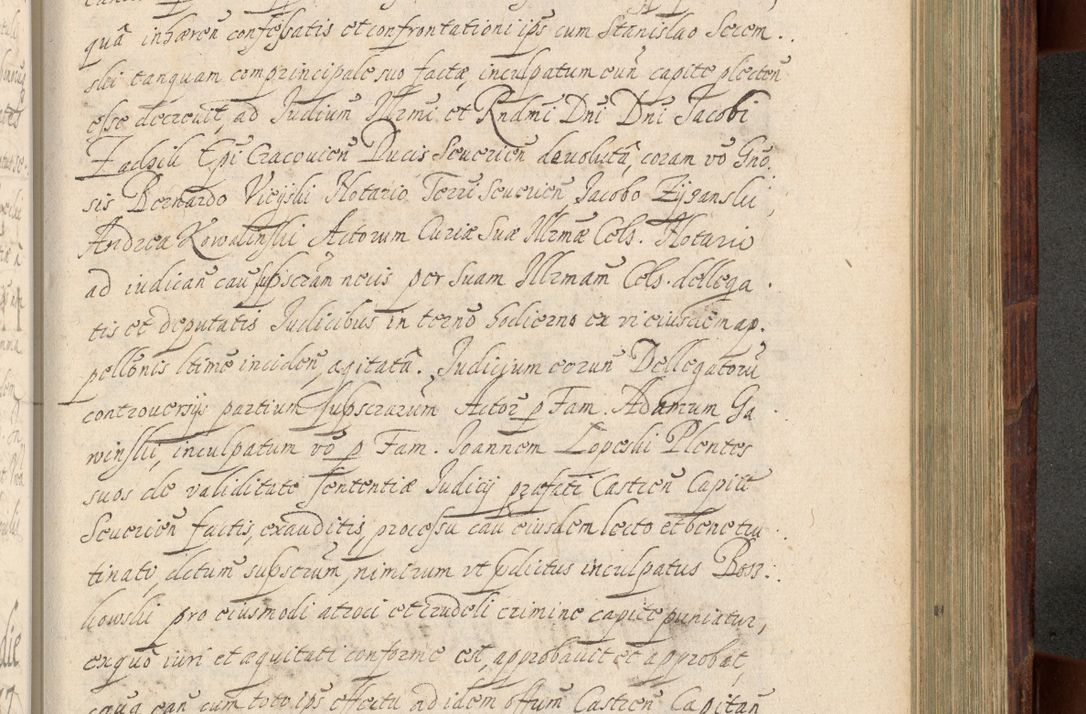 quâ inhæren confessatis et confrontationi ips cum Stanislao Sciem
ski tanquam comprincipale suo factæ, inculpatum eun capite plecten
esse decreuit, ad Iudium Illrmi et Rndmi Dni Dni Jacobi
Zadzik Epi Cracouien Ducis Seuerien deuolutâ, coram vo Gno
sis Bernardo Vieyski Notario Terre Seuerien, Jacobo Zÿganski,
Andrea Kowalinski Actorum Curiæ Suæ Illrmæ Cels. Notario
ad iudican cau supscram necis per Suam Illrmam Cels. dellega
tis et deputatis Iudicibus in terno hodierno ex vi eiusdem ap.
pellonis ltime inciden, agitatâ. Judicium eorun Dellegatoru
controuersijs partium supscrarum Actor p Fam. Adamum Ga
winski, inculpatum vo p Fam. Joannem Lopeski Plentes
suos de validitate sententiæ Judicij præfati Castren Capitt
Seuerien factis, exauditis, processu cau eiusdem lecto et bene tru
tinato, dctum supscrum, nimirum vt pdictus inculpatus Borz
kowski pro eiusmodi atroci et crudeli crimine capite puniatur,
ex quo iuri et æquitati conforme est, approbauit et approbat,
eâqua ean cum toto ips effectu ad idem offum Castren Capitan